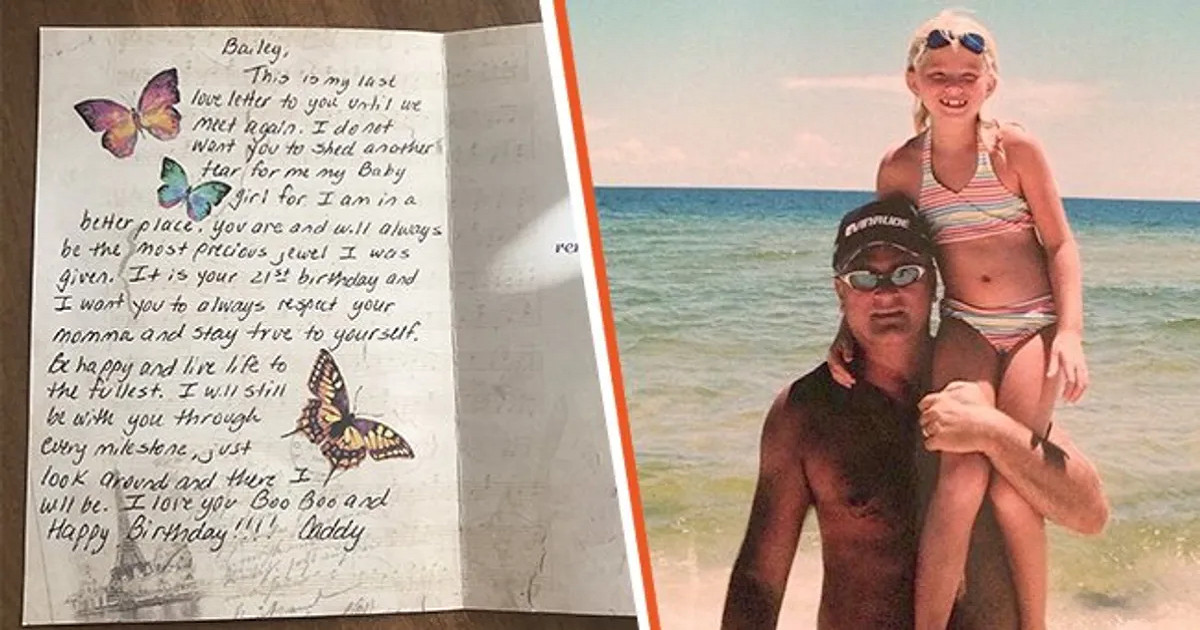 Bailey,
This is my last
love letter to you until we
meet again. I do not
want you to shed another
tear for me my Baby
girl for I am in a
better place. you are and will always
be the most precious jewel I was
given. It is your 21st birthday and
I want you to always respect your
momma and stay true to yourself.
Be happy and live life to
the fullest. I will still
be with you through
every milestone, just
look around and there I
will be. I love you Boo Boo and
Happy Birthday!!!! Daddy
rem
EVINRUDE